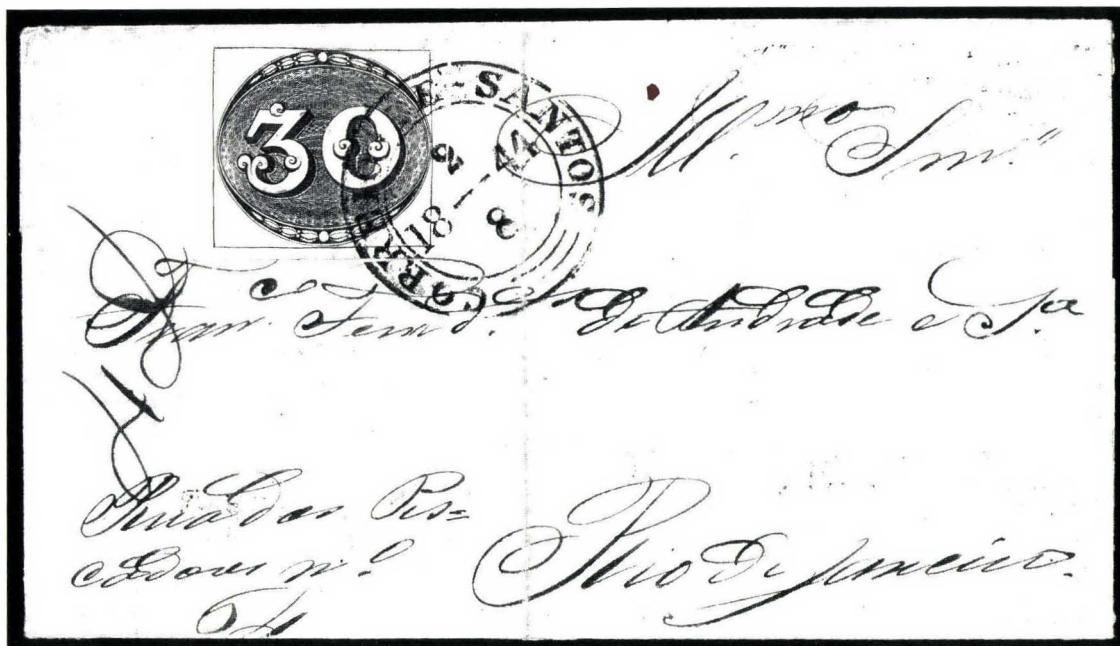 30
CORREIO DE SANTOS
2 8
1844
Ill.mo Snr.
Fran.co Ferrd. de Andrade e S.a
Rua dos Pes=
cadores n.o
Rio de Janeiro.